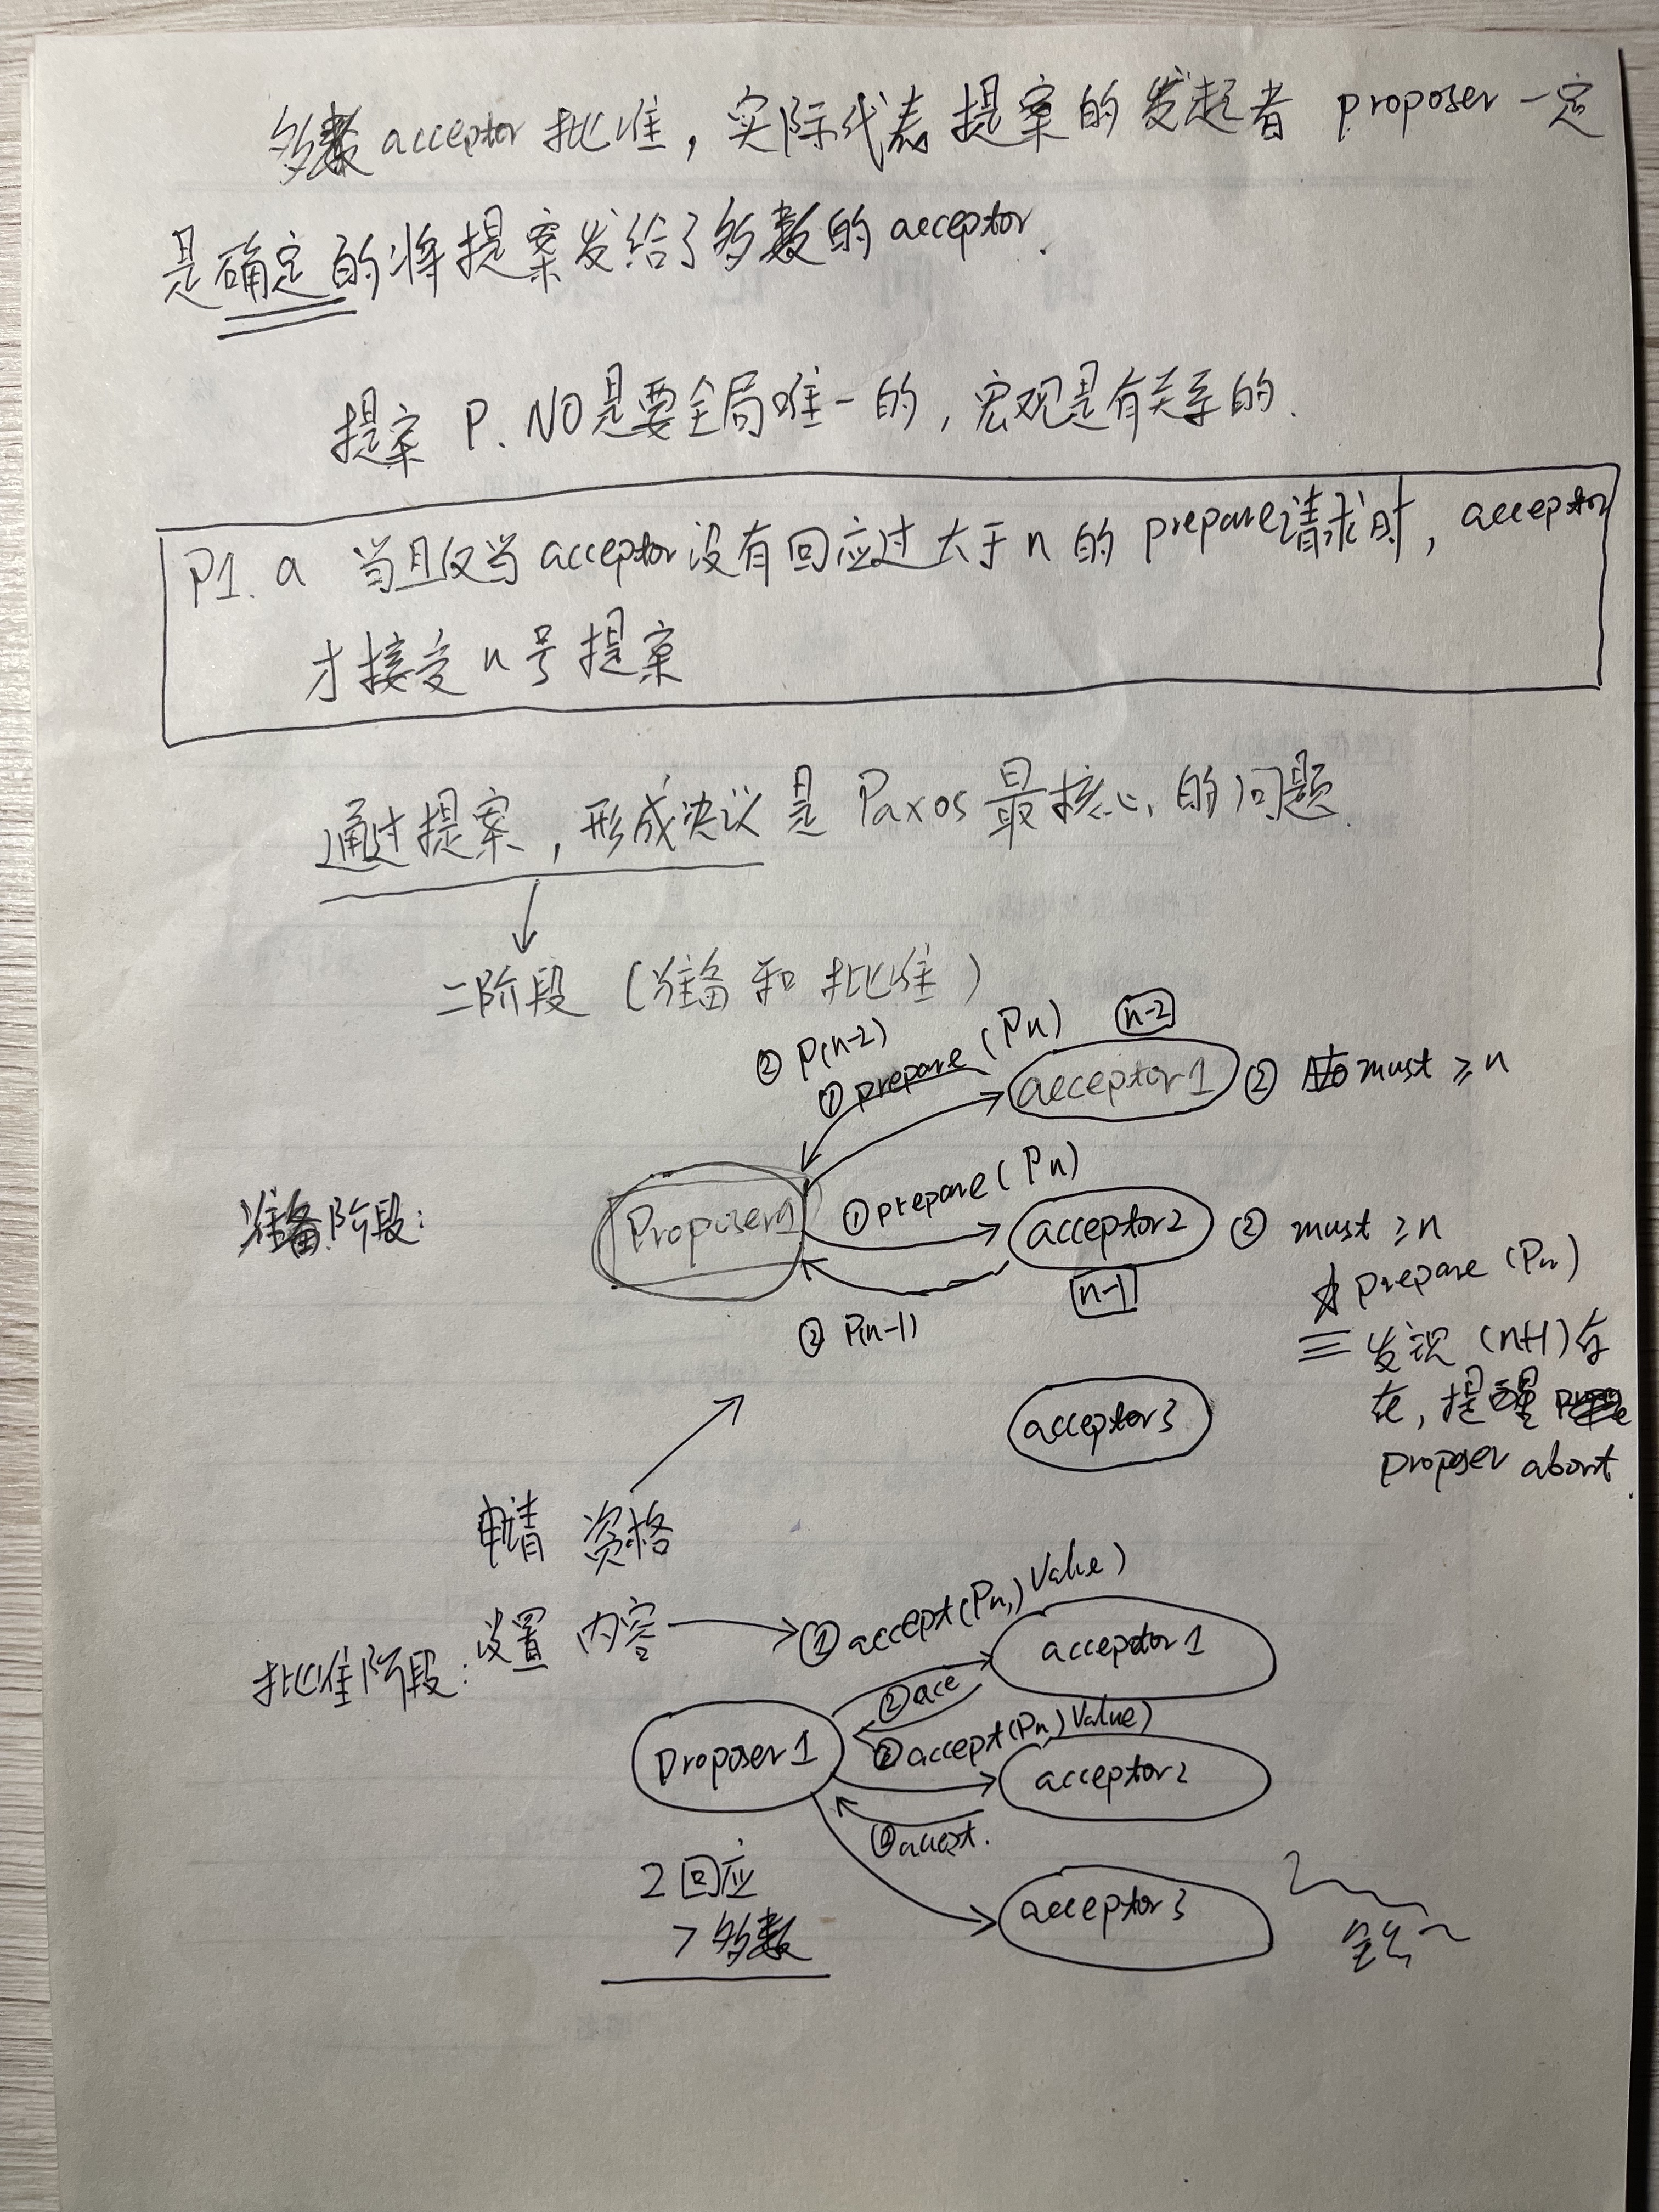 多数acceptor批准，实际代表提案的发起者 proposer一定
是确定的将提案发给了多数的acceptor.
提案 P.NO是要全局唯一的，宏观是有关系的.
P1.a 当且仅当acceptor没有回应过大于n的prepare请求时，acceptor
才接受n号提案
通过提案，形成决议是Paxos最核心的问题.
二阶段（准备和批准）
② P(n-2)
① prepare (Pn)
n-2
acceptor1
② must ≥ n
准备阶段：
Proposer1
① prepare (Pn)
acceptor2
② must ≥ n
n-1
② P(n-1)
prepare (Pn)
发现 (n+1)存
在，提醒
proposer abort.
acceptor3
申请 资格
批准阶段：设置 内容
① accept(Pn, Value)
acceptor1
② acc
Proposer1
① accept(Pn, Value)
acceptor2
② accept.
2回应
> 多数
acceptor3